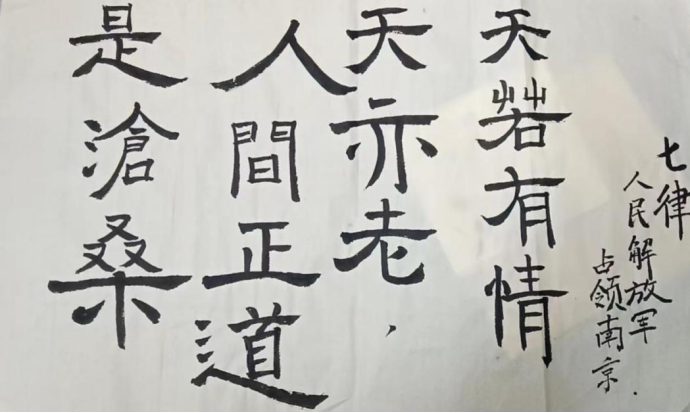 七律
人民解放军
占领南京.
天若有情
天亦老，
人間正道
是滄桑